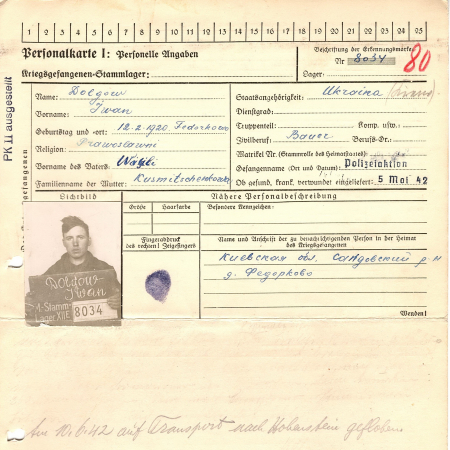 1 2 3 4 5 6 7 8 9 10 11 12 13 14 15 16 17 18 19 20 21 22 23 24 25
Personalkarte I: Personelle Angaben
Kriegsgefangenen-Stammlager:
Beschriftung der Erkennungsmarke
Nr 8034
Lager:
80
PK II ausgestellt
Name: Dolgow
Vorname: Iwan
Geburtstag und -ort: 12.2.1920 Fedorkowo
Religion: Prawoslawni
Vorname des Vaters:
Familienname der Mutter:
Staatsangehörigkeit: Ukraina
Dienstgrad:
Truppenteil: Komp. usw.:
Zivilberuf: Bauer Berufs-Gr.:
Matrikel Nr. (Stammrolle des Heimatstaates):
Gefangennahme (Ort und Datum): Polizeiaktion
Ob gesund, krank, verwundet eingeliefert: 5 Mai 42
des Kriegsgefangenen
Lichtbild
Nähere Personalbeschreibung
Größe Haarfarbe
Besondere Kennzeichen:
Fingerabdruck
des rechten! Zeigefingers
Name und Anschrift der zu benachrichtigenden Person in der Heimat
des Kriegsgefangenen
Киевская обл. р-н
д. Федорково
Wenden!
Dolgow
Iwan
Stamm-
Lager XIII E 8034
Am 10.6.42 auf Transport nach Hohenstein geflohen.